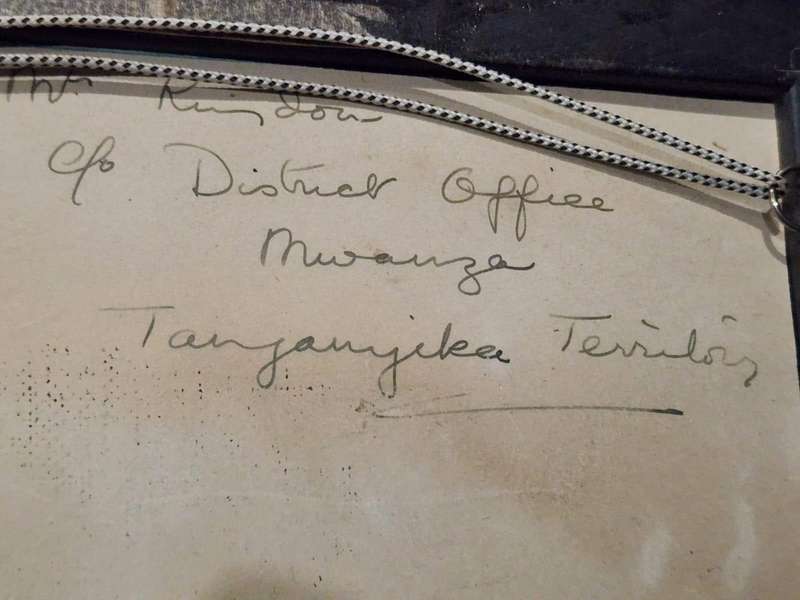 Mr Kingdon
c/o District Office
Mwanza
Tanganyika Territory